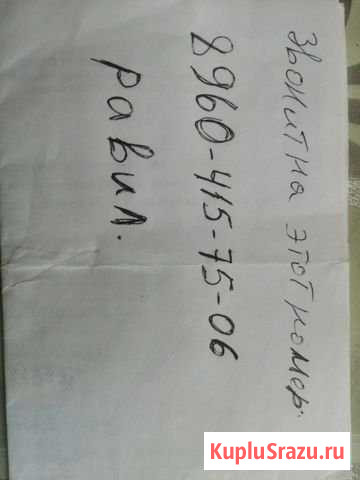 звонит на этот номер.
8960-415-75-06
равил.
KupluSrazu.ru